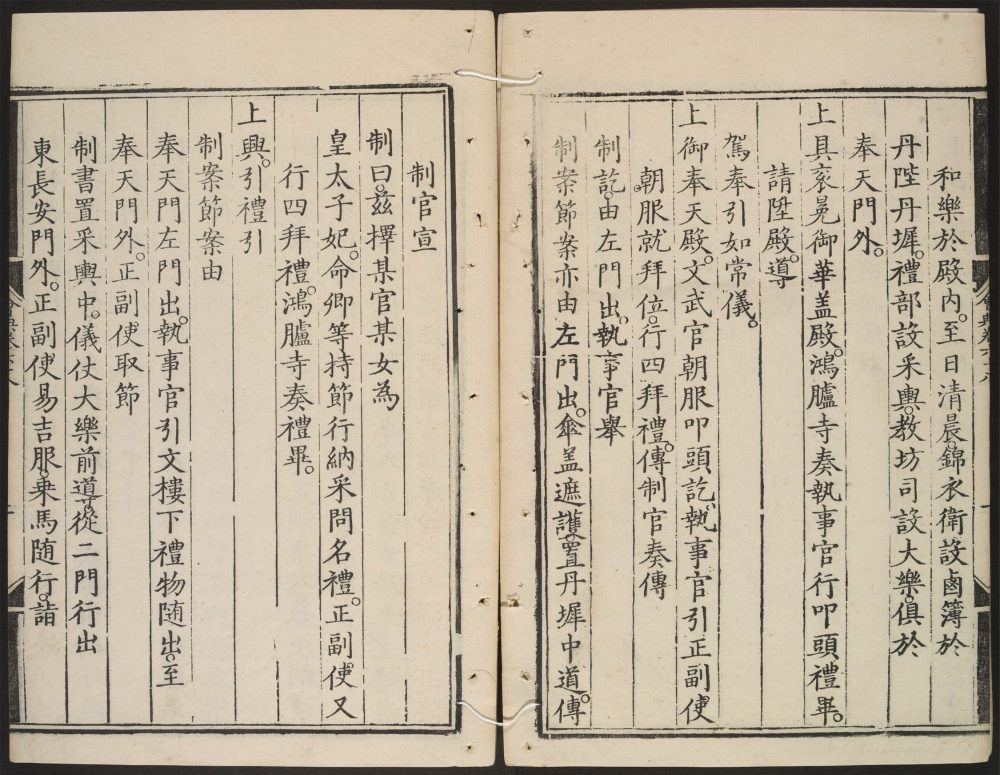 和樂於殿内。至日清晨。錦衣衛設鹵簿於
丹陛丹墀。禮部設采輿。教坊司設大樂。俱於
奉天門外。
上具衮冕御華盖殿。鴻臚寺奏執事官行叩頭禮畢。
請陞殿。導
駕奉引如常儀。
上御奉天殿。文武官朝服叩頭訖。執事官引正副使
朝服就拜位。行四拜禮。傳制官奏傳
制訖。由左門出。執事官舉
制案節案亦由左門出。傘盖遮護。置丹墀中道。傳
制官宣
制曰。兹擇某官某女為
皇太子妃。命卿等持節行納采問名禮。正副使又
行四拜禮。鴻臚寺奏禮畢。
上興。引禮引
制案節案由
奉天門左門出。執事官引文樓下禮物随出。至
奉天門外。正副使取節
制書置采輿中。儀仗大樂前導。從二門行出
東長安門外。正副使易吉服。乗馬随行。詣